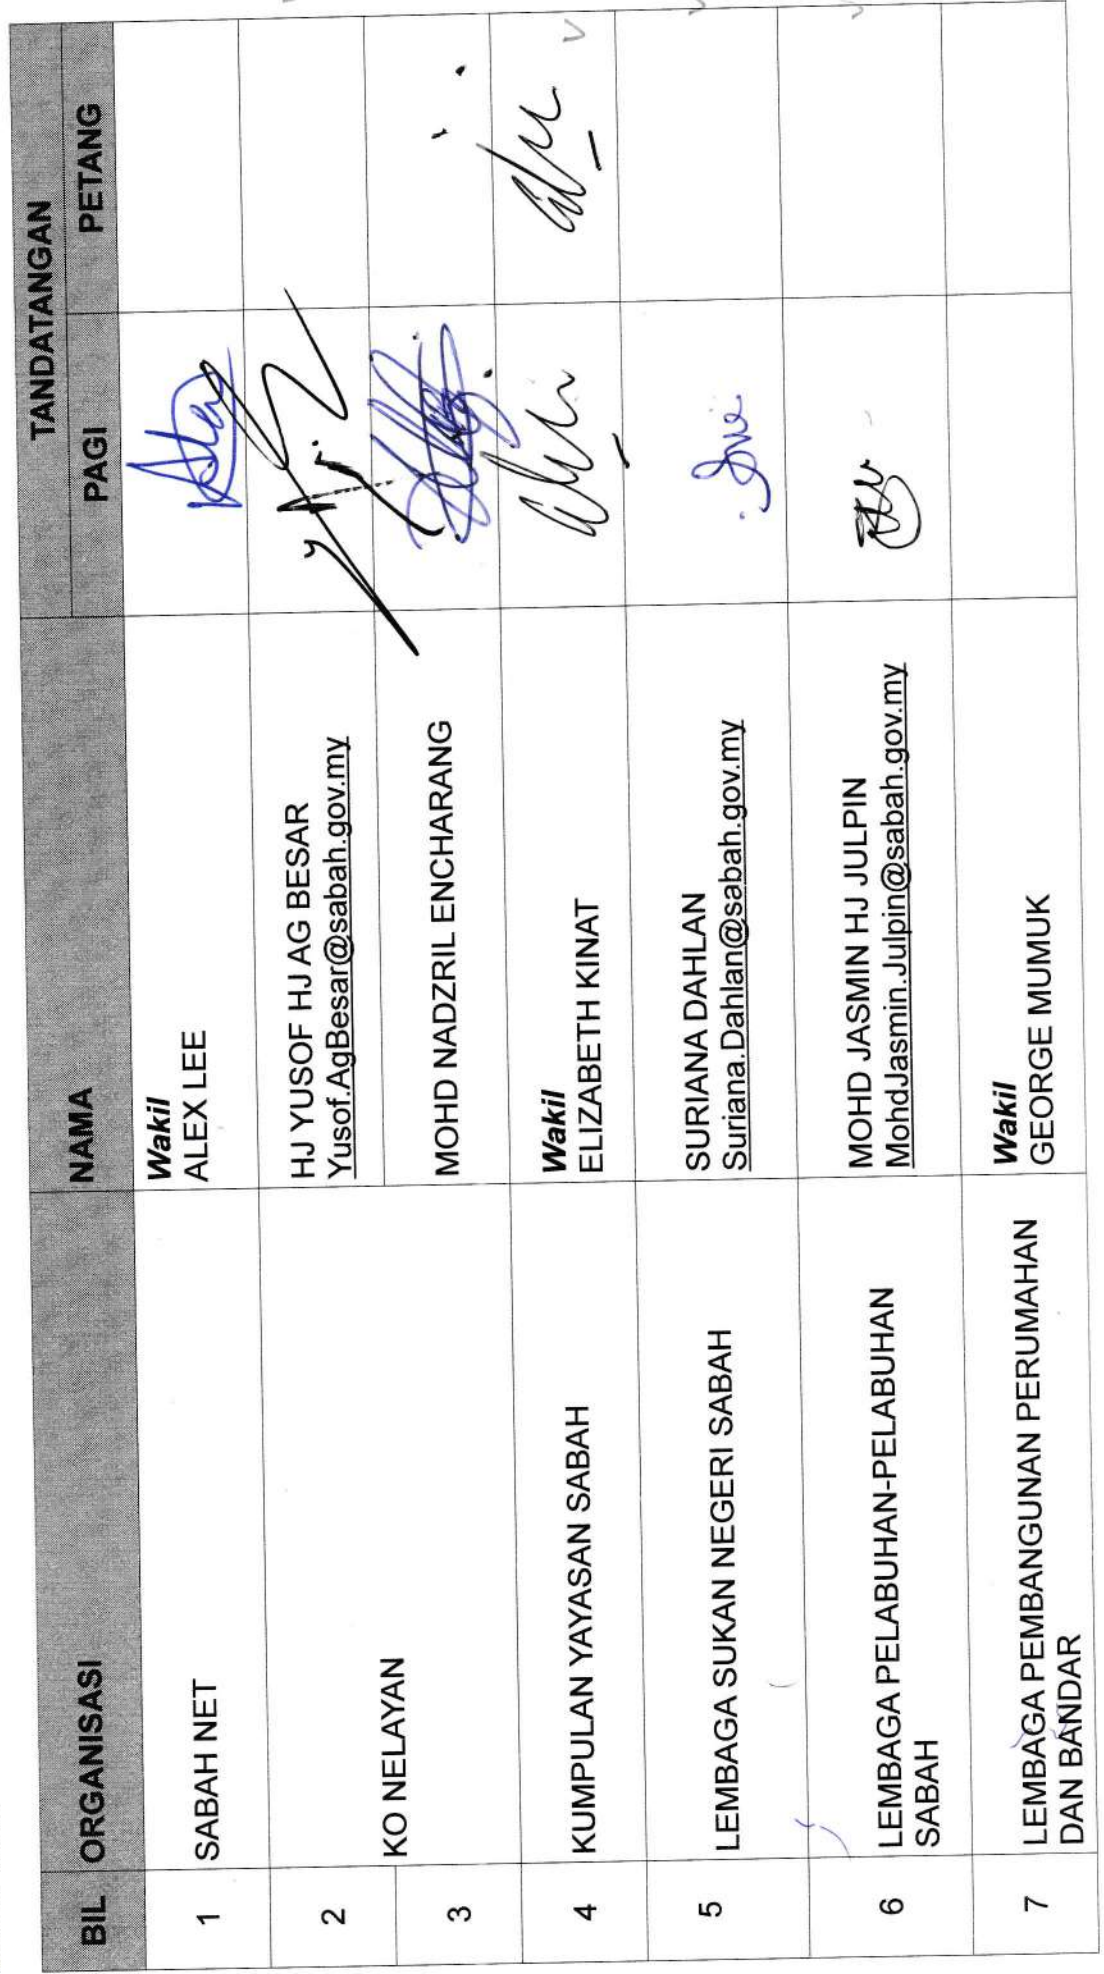 BIL ORGANISASI NAMA TANDATANGAN
PAGI PETANG
1 SABAH NET Wakil
ALEX LEE
2 KO NELAYAN HJ YUSOF HJ AG BESAR
Yusof.AgBesar@sabah.gov.my
3 MOHD NADZRIL ENCHARANG
4 KUMPULAN YAYASAN SABAH Wakil
ELIZABETH KINAT
5 LEMBAGA SUKAN NEGERI SABAH SURIANA DAHLAN
Suriana.Dahlan@sabah.gov.my
6 LEMBAGA PELABUHAN-PELABUHAN
SABAH MOHD JASMIN HJ JULPIN
MohdJasmin.Julpin@sabah.gov.my
7 LEMBAGA PEMBANGUNAN PERUMAHAN
DAN BANDAR Wakil
GEORGE MUMUK